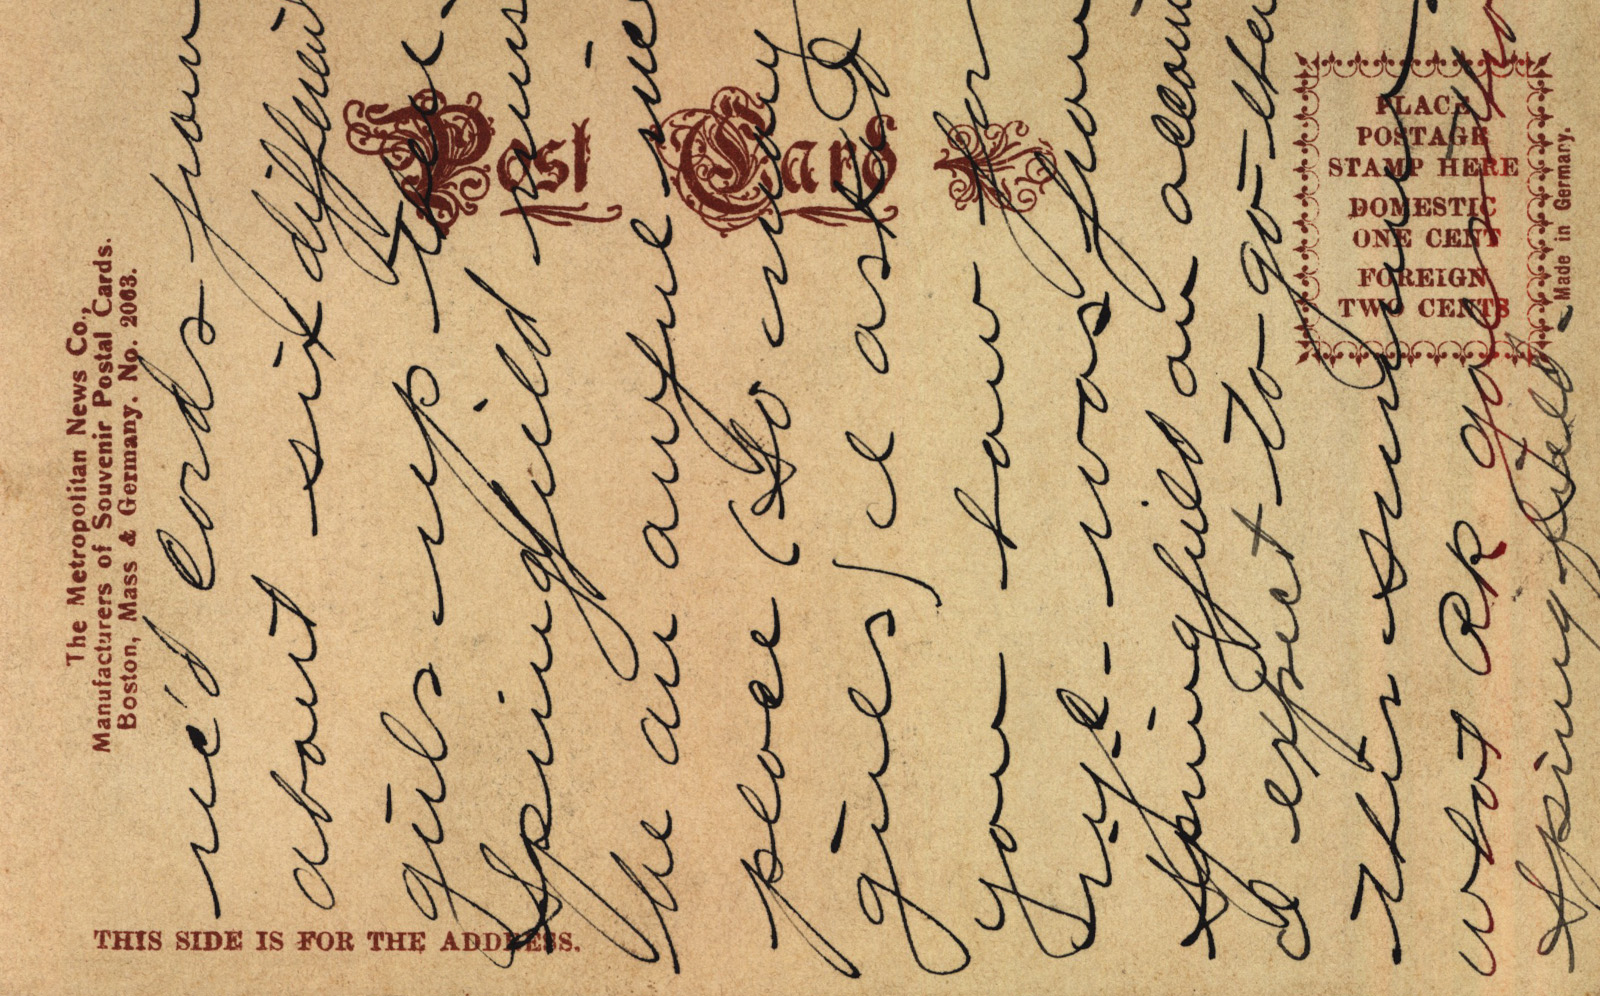 The Metropolitan News Co.,
Manufacturers of Souvenir Postal Cards.
Boston, Mass & Germany. No. 2063.
Post Card
PLACE
POSTAGE
STAMP HERE
DOMESTIC
ONE CENT
FOREIGN
TWO CENTS
Made in Germany.
THIS SIDE IS FOR THE ADDRESS.
rec'd cords from
about six different
girls up - there
Springfield must
be an awful nice
place (so many
girls) I ask
you how for
Springfield on account
I expect to go - there
this summer
what RR
Springfield -